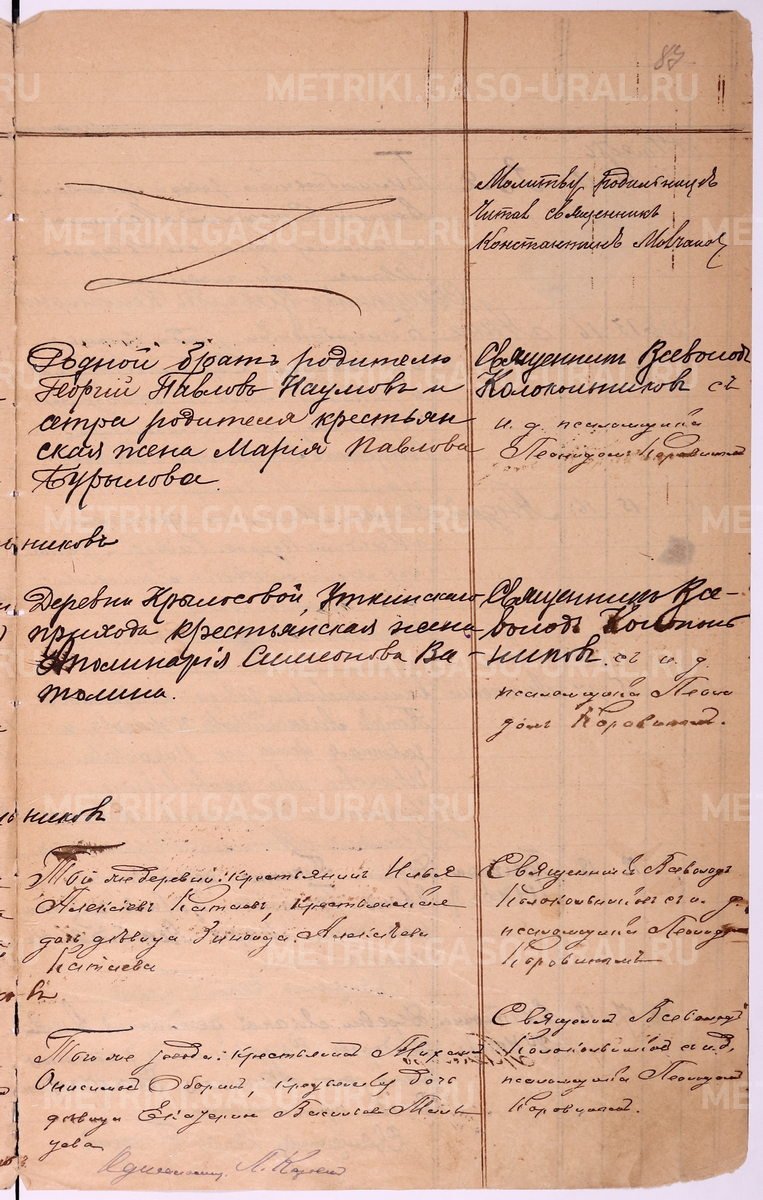 83
Молитву родильницѣ
читав священникъ
Константинъ Мовчанов
Родной братъ родителю
Георгій Павловъ Наумовъ и
сетра родителя крестьян
ская жена Марія Павлова
Бурылова.
Священник Всеволодъ
Колокольниковъ съ
и. д. псаломщика
Леонидомъ Коровинымъ
никовъ
Деревни Крылосовой, Уткинскаго
прихода крестьянская жена
Аполинарія Симеонова Ва-
толина.
Священникъ Все-
володъ Колоколь
никовъ съ и. д.
псаломщика Леони
домъ Коровиным.
никовъ
Той же деревни: крестьянинъ Илья
Алексѣевъ Катаевъ, крестьянская
дочь дѣвица Зиноида Алексѣева
Катаева
въ
Священникъ Всеволодъ
Колокольниковъ съ и. д.
псаломщика Леонидо
Коровинымъ
Того же завода: крестьянинъ Михаилъ
Онисимов Оборин, дочь
дѣвица Екатерин Васильева
цева
Священник Всеволодъ
Колокольников с и. д.
псаломщика Леонидом
Коровиным.
METRIKI.GASO-URAL.RU